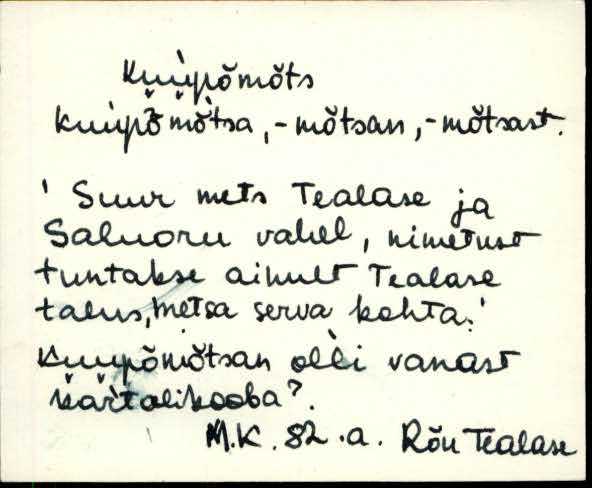 Kuupõmõts
Kuupõmõtsa, -mõtsan, -mõtsast.
'Suur mets Tealase ja
Saluoru vahel, nimetust
tuntakse ainult Tealase
talus, metsa serva kohta.'
Kuupõmõtsan olli vanast
kartolikooba?.
M.K. 82.a. Rõu Tealase